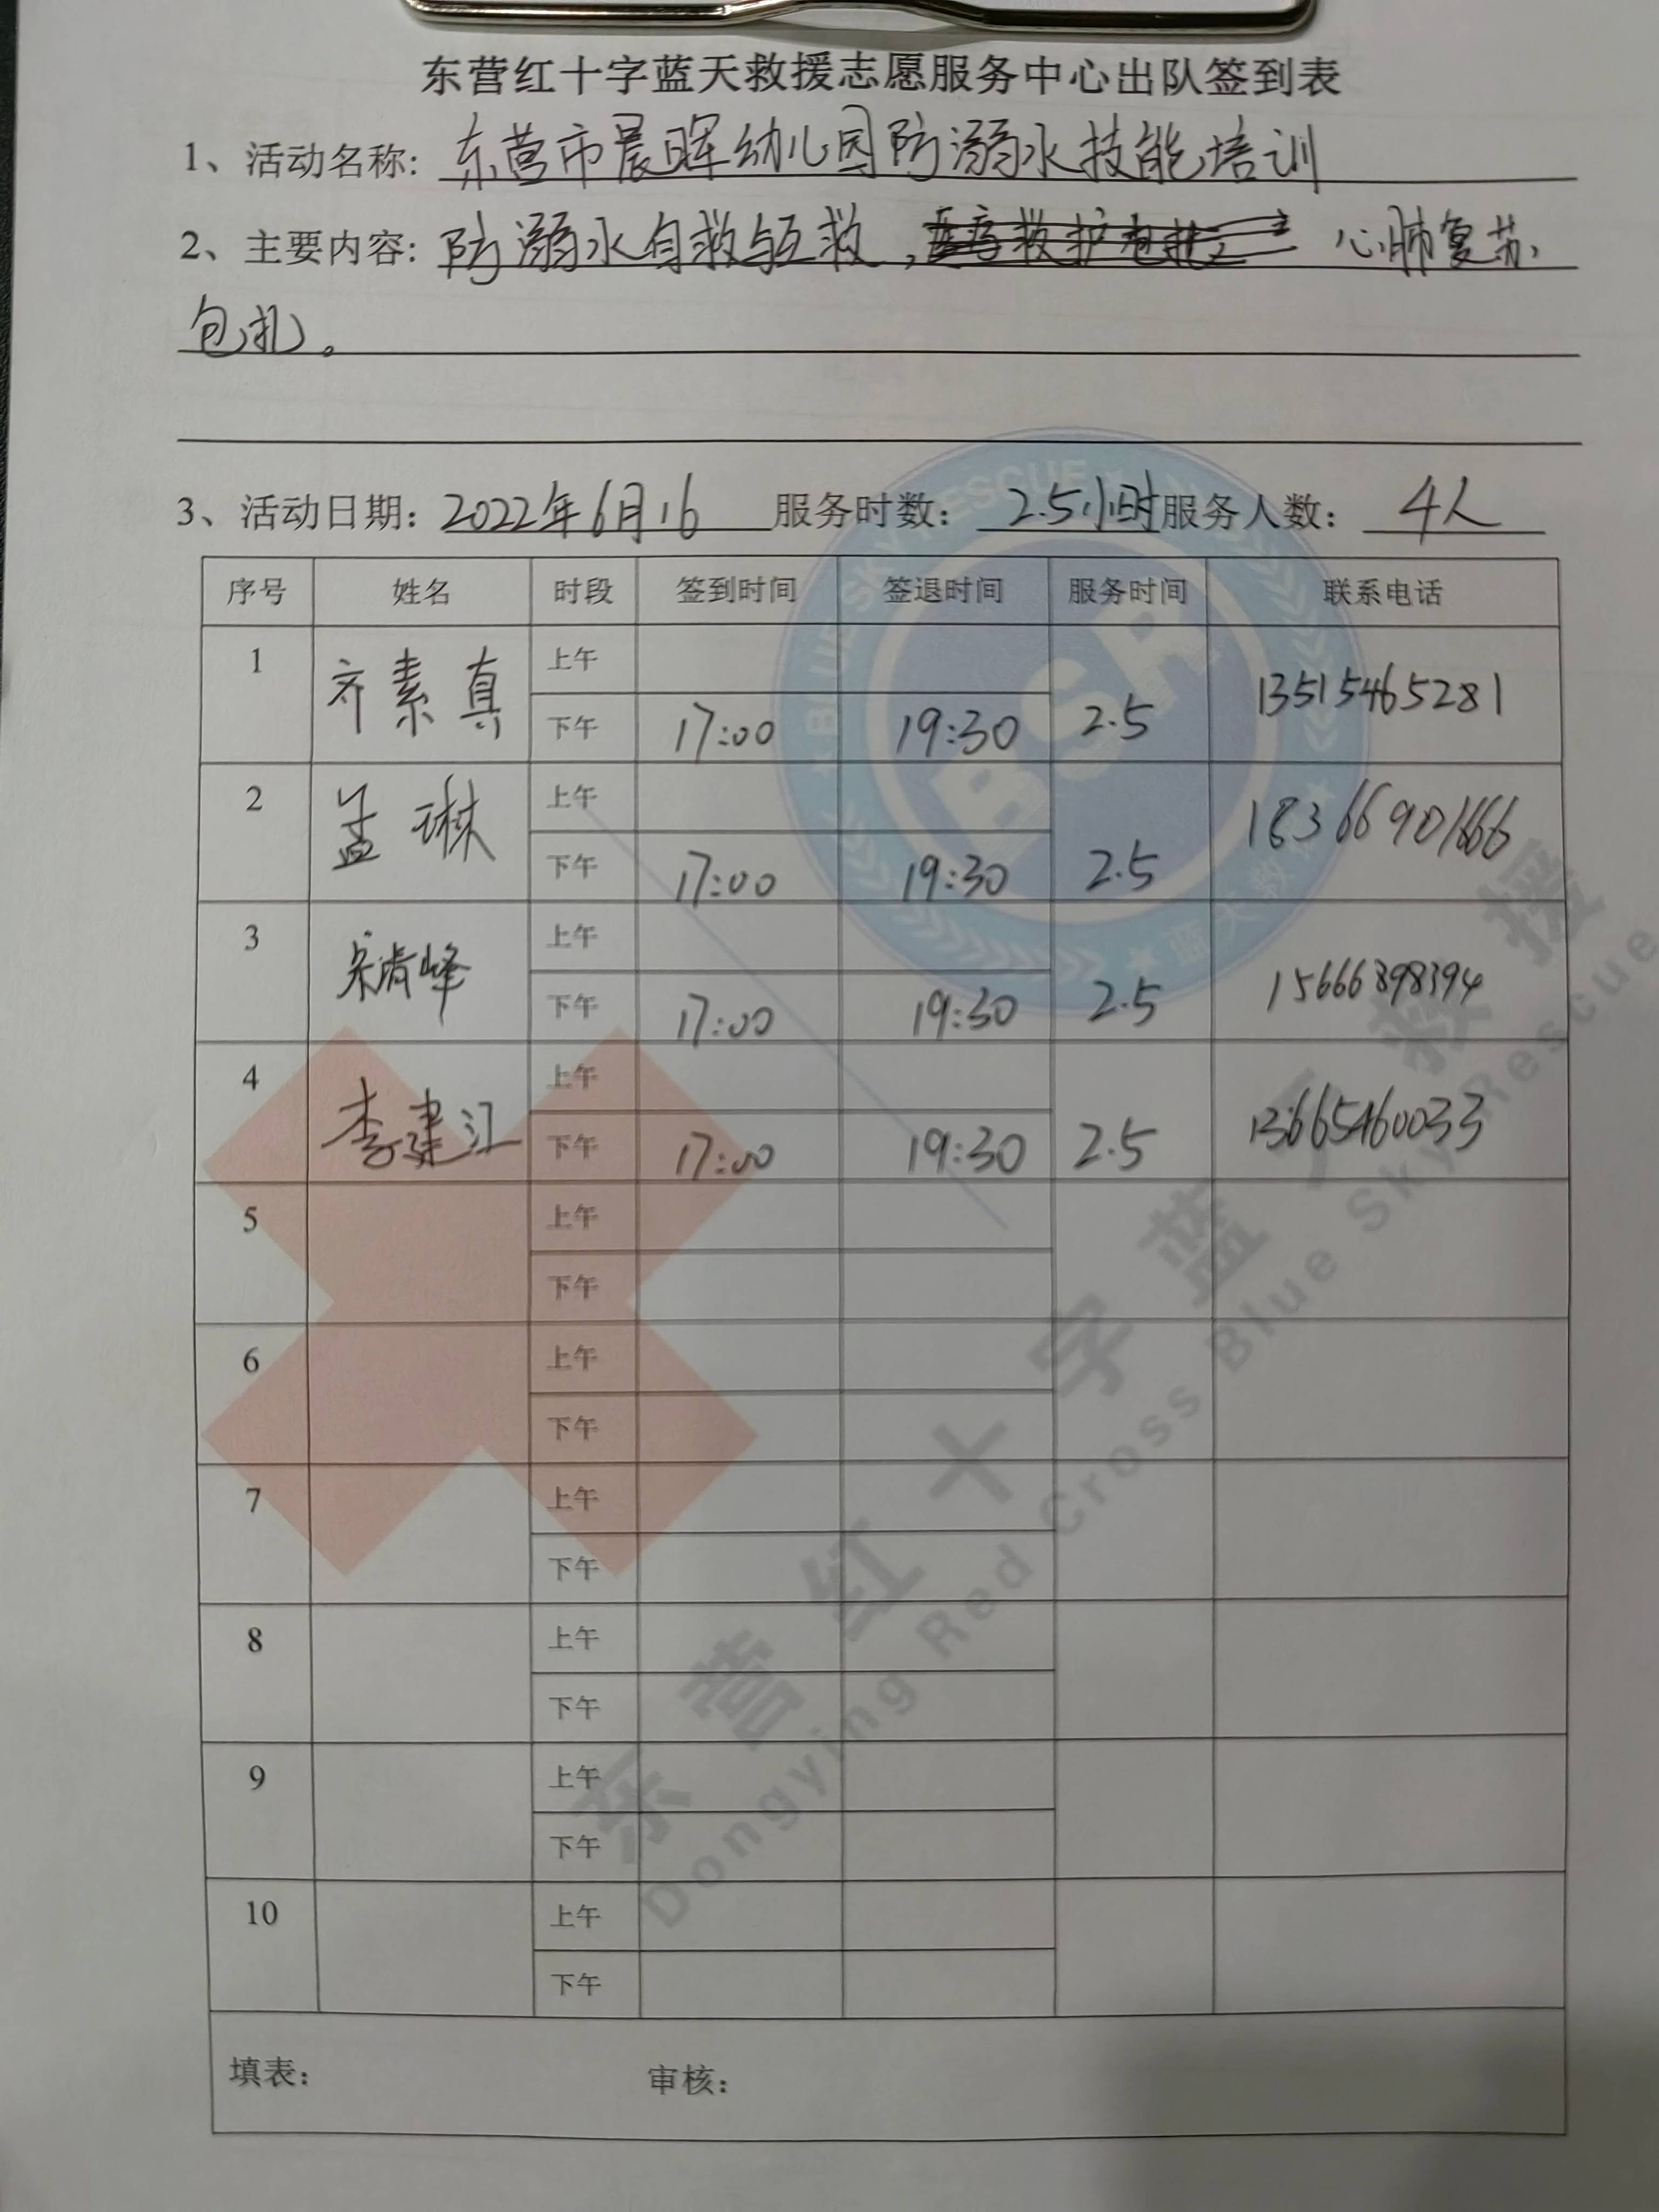 东营红十字蓝天救援志愿服务中心出队签到表
1、活动名称: 东营市晨晖幼儿园防溺水技能培训
2、主要内容: 防溺水自救与互救, 心肺复苏、
包扎。
3、活动日期: 2022年6月16 服务时数: 2.5小时 服务人数: 4人
序号 姓名 时段 签到时间 签退时间 服务时间 联系电话
1 齐素真 上午
下午 17:00 19:30 2.5 13515465281
2 孟琳 上午
下午 17:00 19:30 2.5 18366901666
3 上午
下午 17:00 19:30 2.5 15666398394
4 李建江 上午
下午 17:00 19:30 2.5 13665460033
5 上午
下午
6 上午
下午
7 上午
下午
8 上午
下午
9 上午
下午
10 上午
下午
填表: 审核:
BLUE SKY RESCUE
BSR
蓝天救援
东营红十字蓝天救援
Dongying Red Cross Blue Sky Rescue